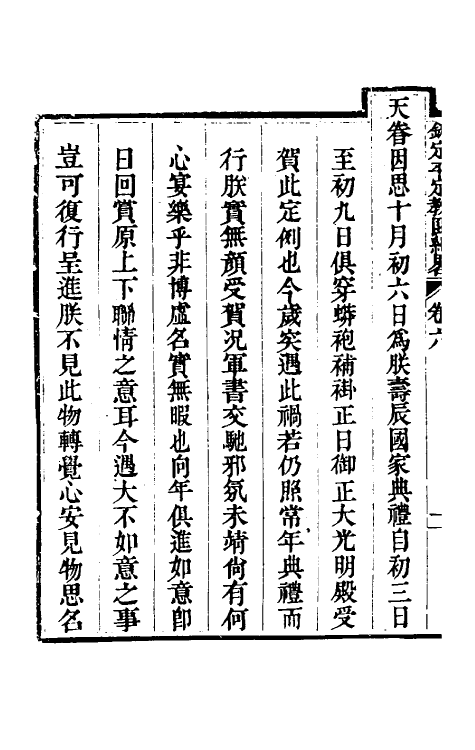 欽定平定教匪紀略 卷六 二
天眷因思十月初六日爲朕壽辰國家典禮自初三日
至初九日俱穿蟒袍補褂正日御正大光明殿受
賀此定例也今歲突遇此禍若仍照常年典禮而
行朕實無顏受賀況軍書交馳邪氛未靖尙有何
心宴樂乎非博虛名實無暇也向年俱進如意卽
日回賞原上下聯情之意耳今遇大不如意之事
豈可復行呈進朕不見此物轉覺心安見物思名